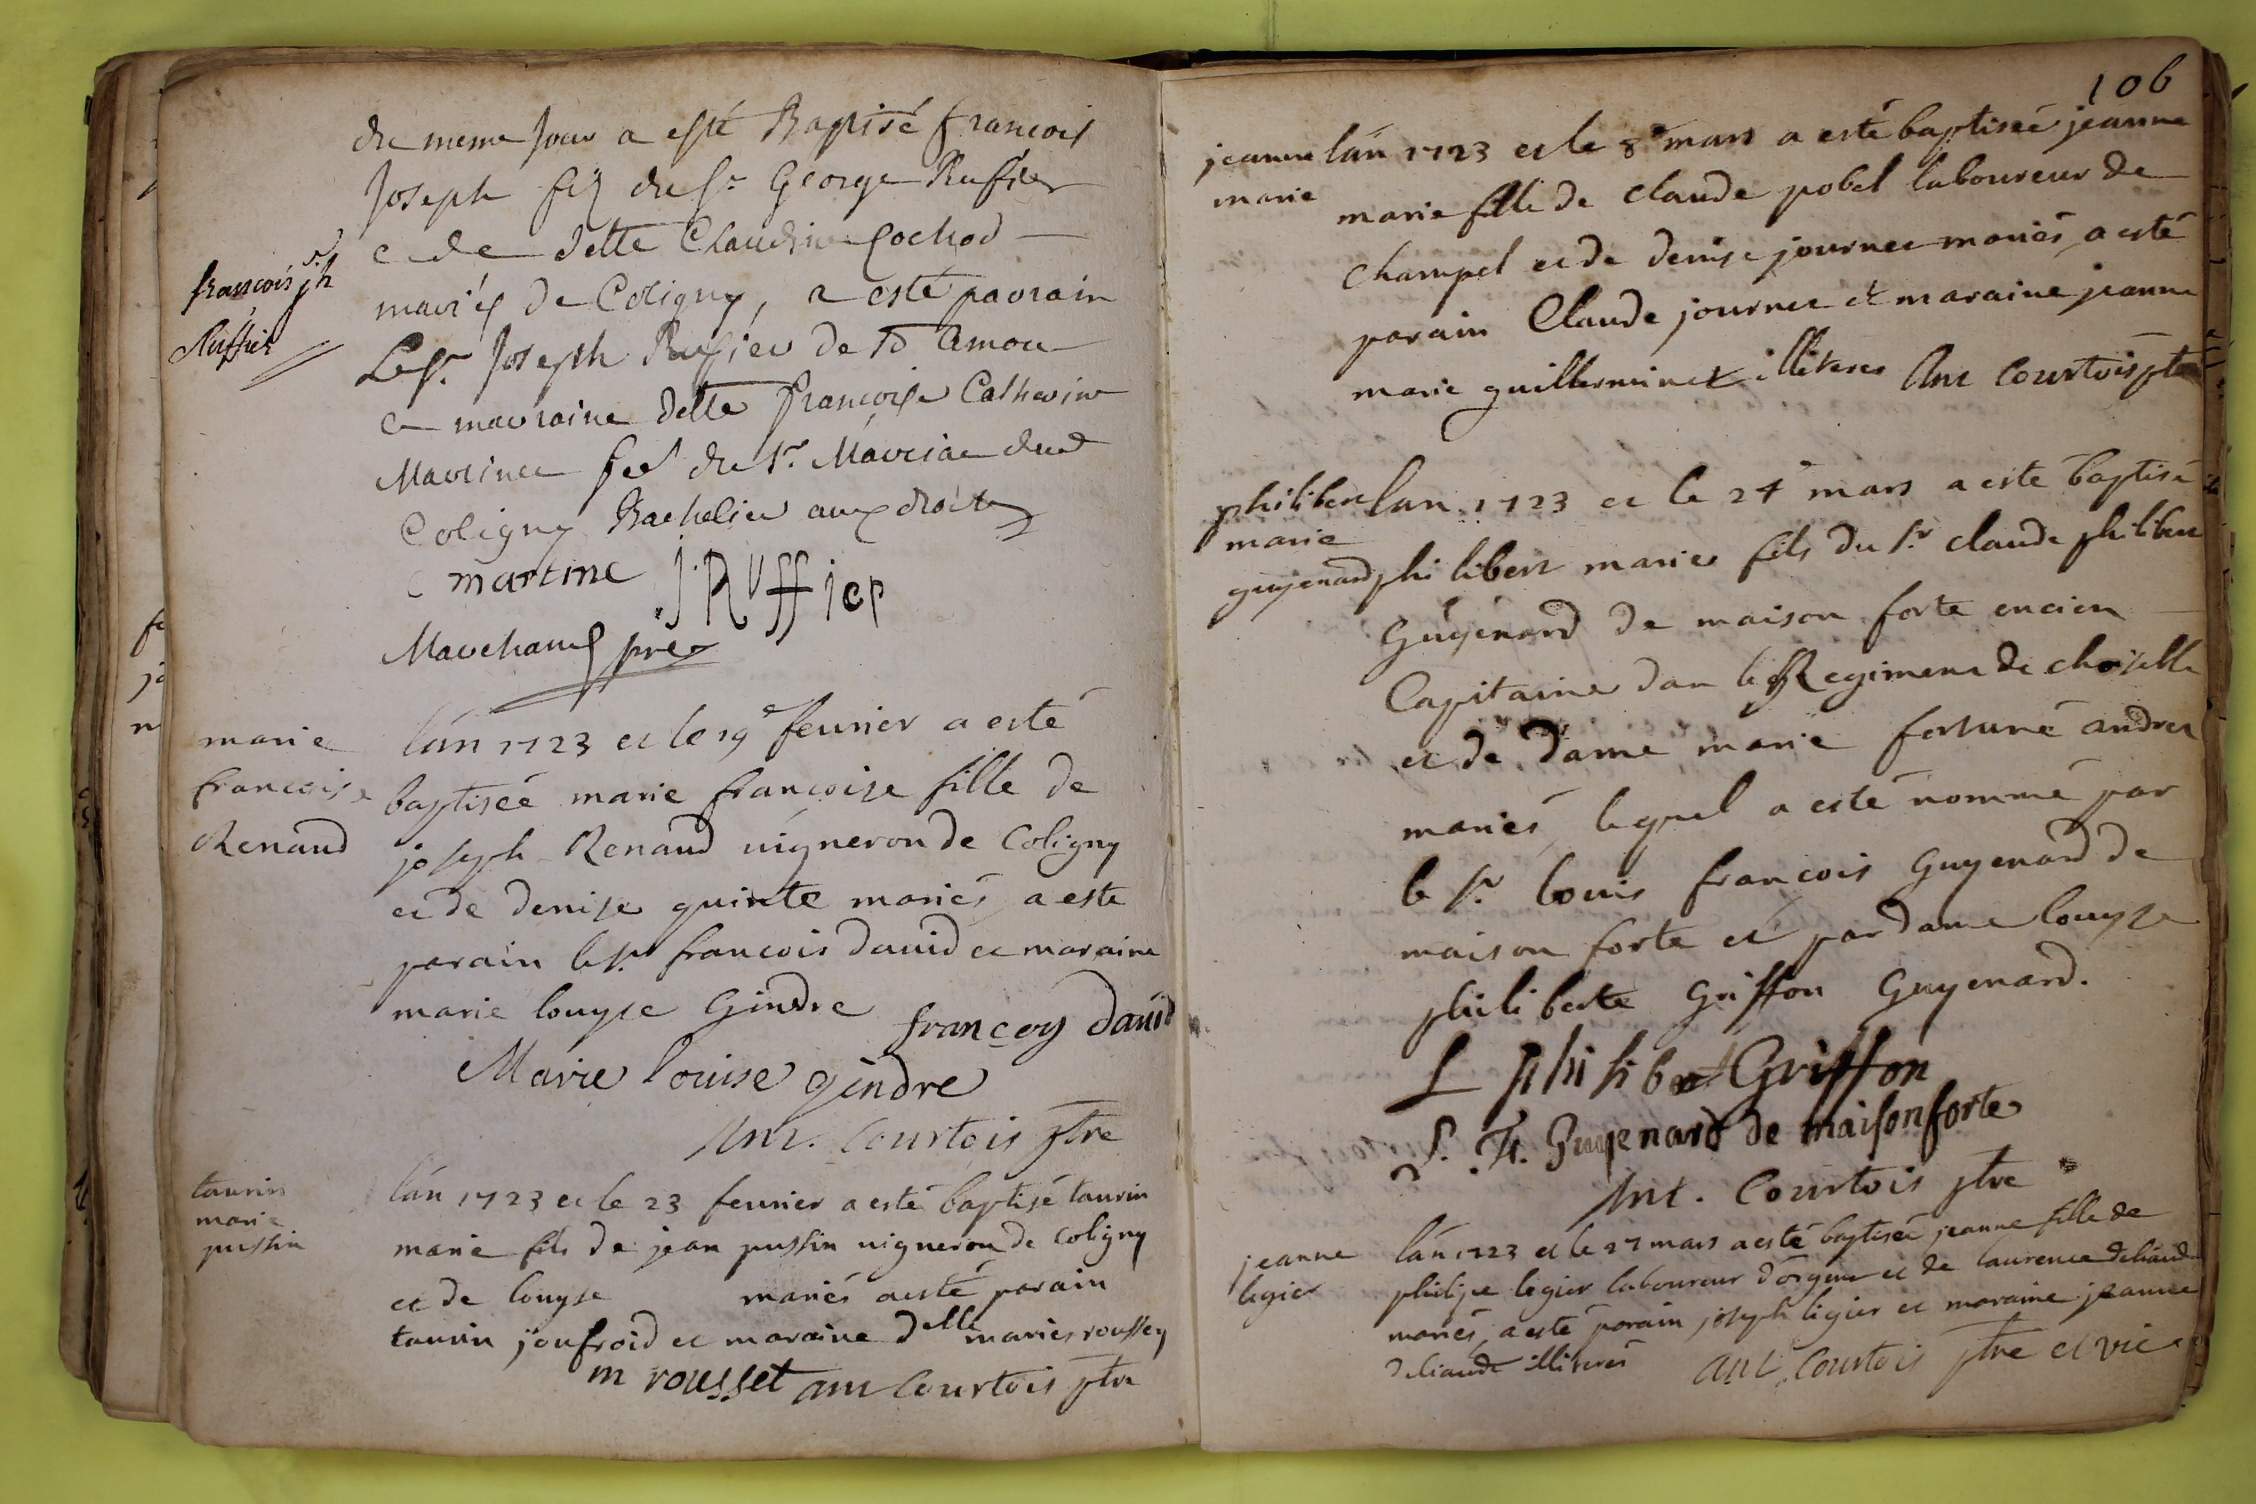 du meme Jour a esté Baptisé francois
Joseph fils du Sr George Ruffier
e de delle Claudine Cochod
françois jph
Ruffier
mariés de Coligny, a esté parrain
Le Sr Joseph Ruffier de St Amour
e marraine delle françoise Catherine
Martinee du Sr
Coligny Bachelier aux droits
C martine J. Ruffier
Marchand pre
marie
francoise
Renaud
lan 1723 et le 19e feurier a esté
baptiseé marie francoise fille de
joseph Renaud uigneron de Coligny
et de denise quinte mariés a este
parain le sr francois dauid et maraine
marie louyse Gindre
françoy dauid
Marie louise gindre
Ant. Courtois ptre
taurin
marie
pussin
lan 1723 et le 23 feurier a esté baptisé taurin
marie fils de jean pussin uigneron de Coligny
et de louyse mariés a esté parain
taurin joufroid et maraine delle marie roussey
m rousset ant Courtois ptre
106
jeanne
marie
lan 1723 et le 8e mars a esté baptiseé jeanne
marie fille de claude pobel laboureur de
champel et de denise journee mariés a esté
parain Claude journee et maraine jeanne
marie guillerminet illiteres Ant Courtois ptre
philibert
marie
guyenard
lan 1723 et le 24e mars a esté baptisé
philibert marie fils du sr claude philibert
Guyenard de maison forte encien
Capitaine dan le Regiment de choiselle
et de dame marie fortuné andrea
mariés, lequel a esté nommé par
le sr louis francois Guyenard de
maison forte et par dame louyse
philiberte Griffon Guyenard.
L philibert Griffon
L. F. Guyenard de maisonforte
Ant. Courtois ptre
jeanne
legier
lan 1723 et le 27 mars a esté baptiseé jeanne fille de
philipe legier laboureur et de laurence deliaude
mariés, a esté parain joseph ligier et maraine jeanne
deliaude illiterés ant. Courtois ptre et vic